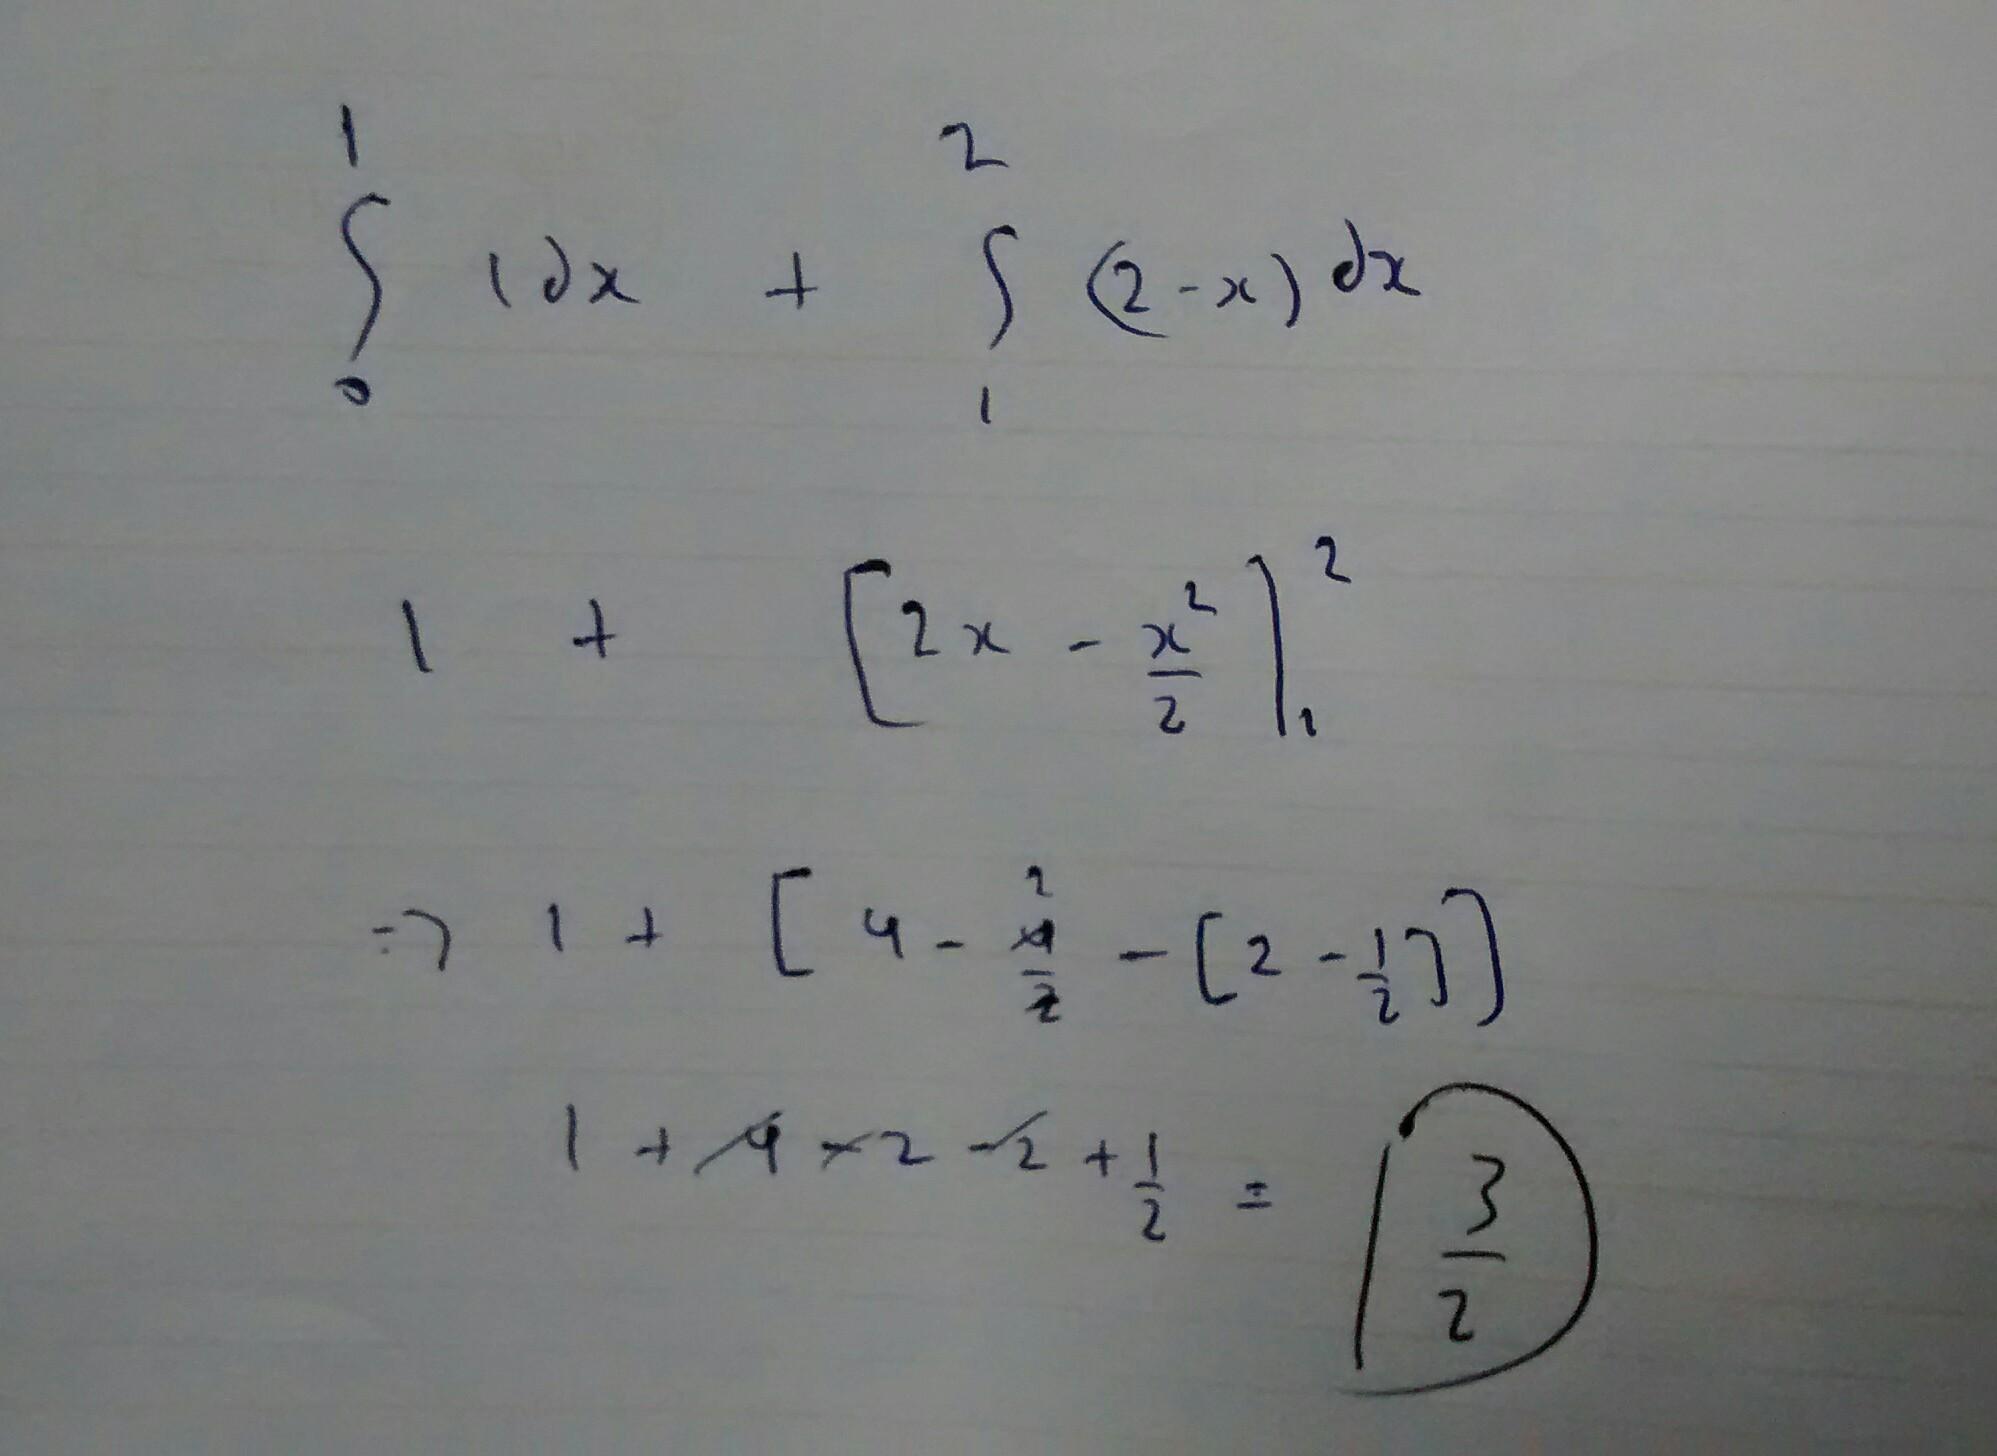 ∫₀¹ 1 dx + ∫₁² (2-x) dx
1 + [2x - x²/2]₁²
⇒ 1 + [4 - 4/2 2 - [2 - 1/2]]
1 + 4 - 2 - 2 + 1/2 = 3/2